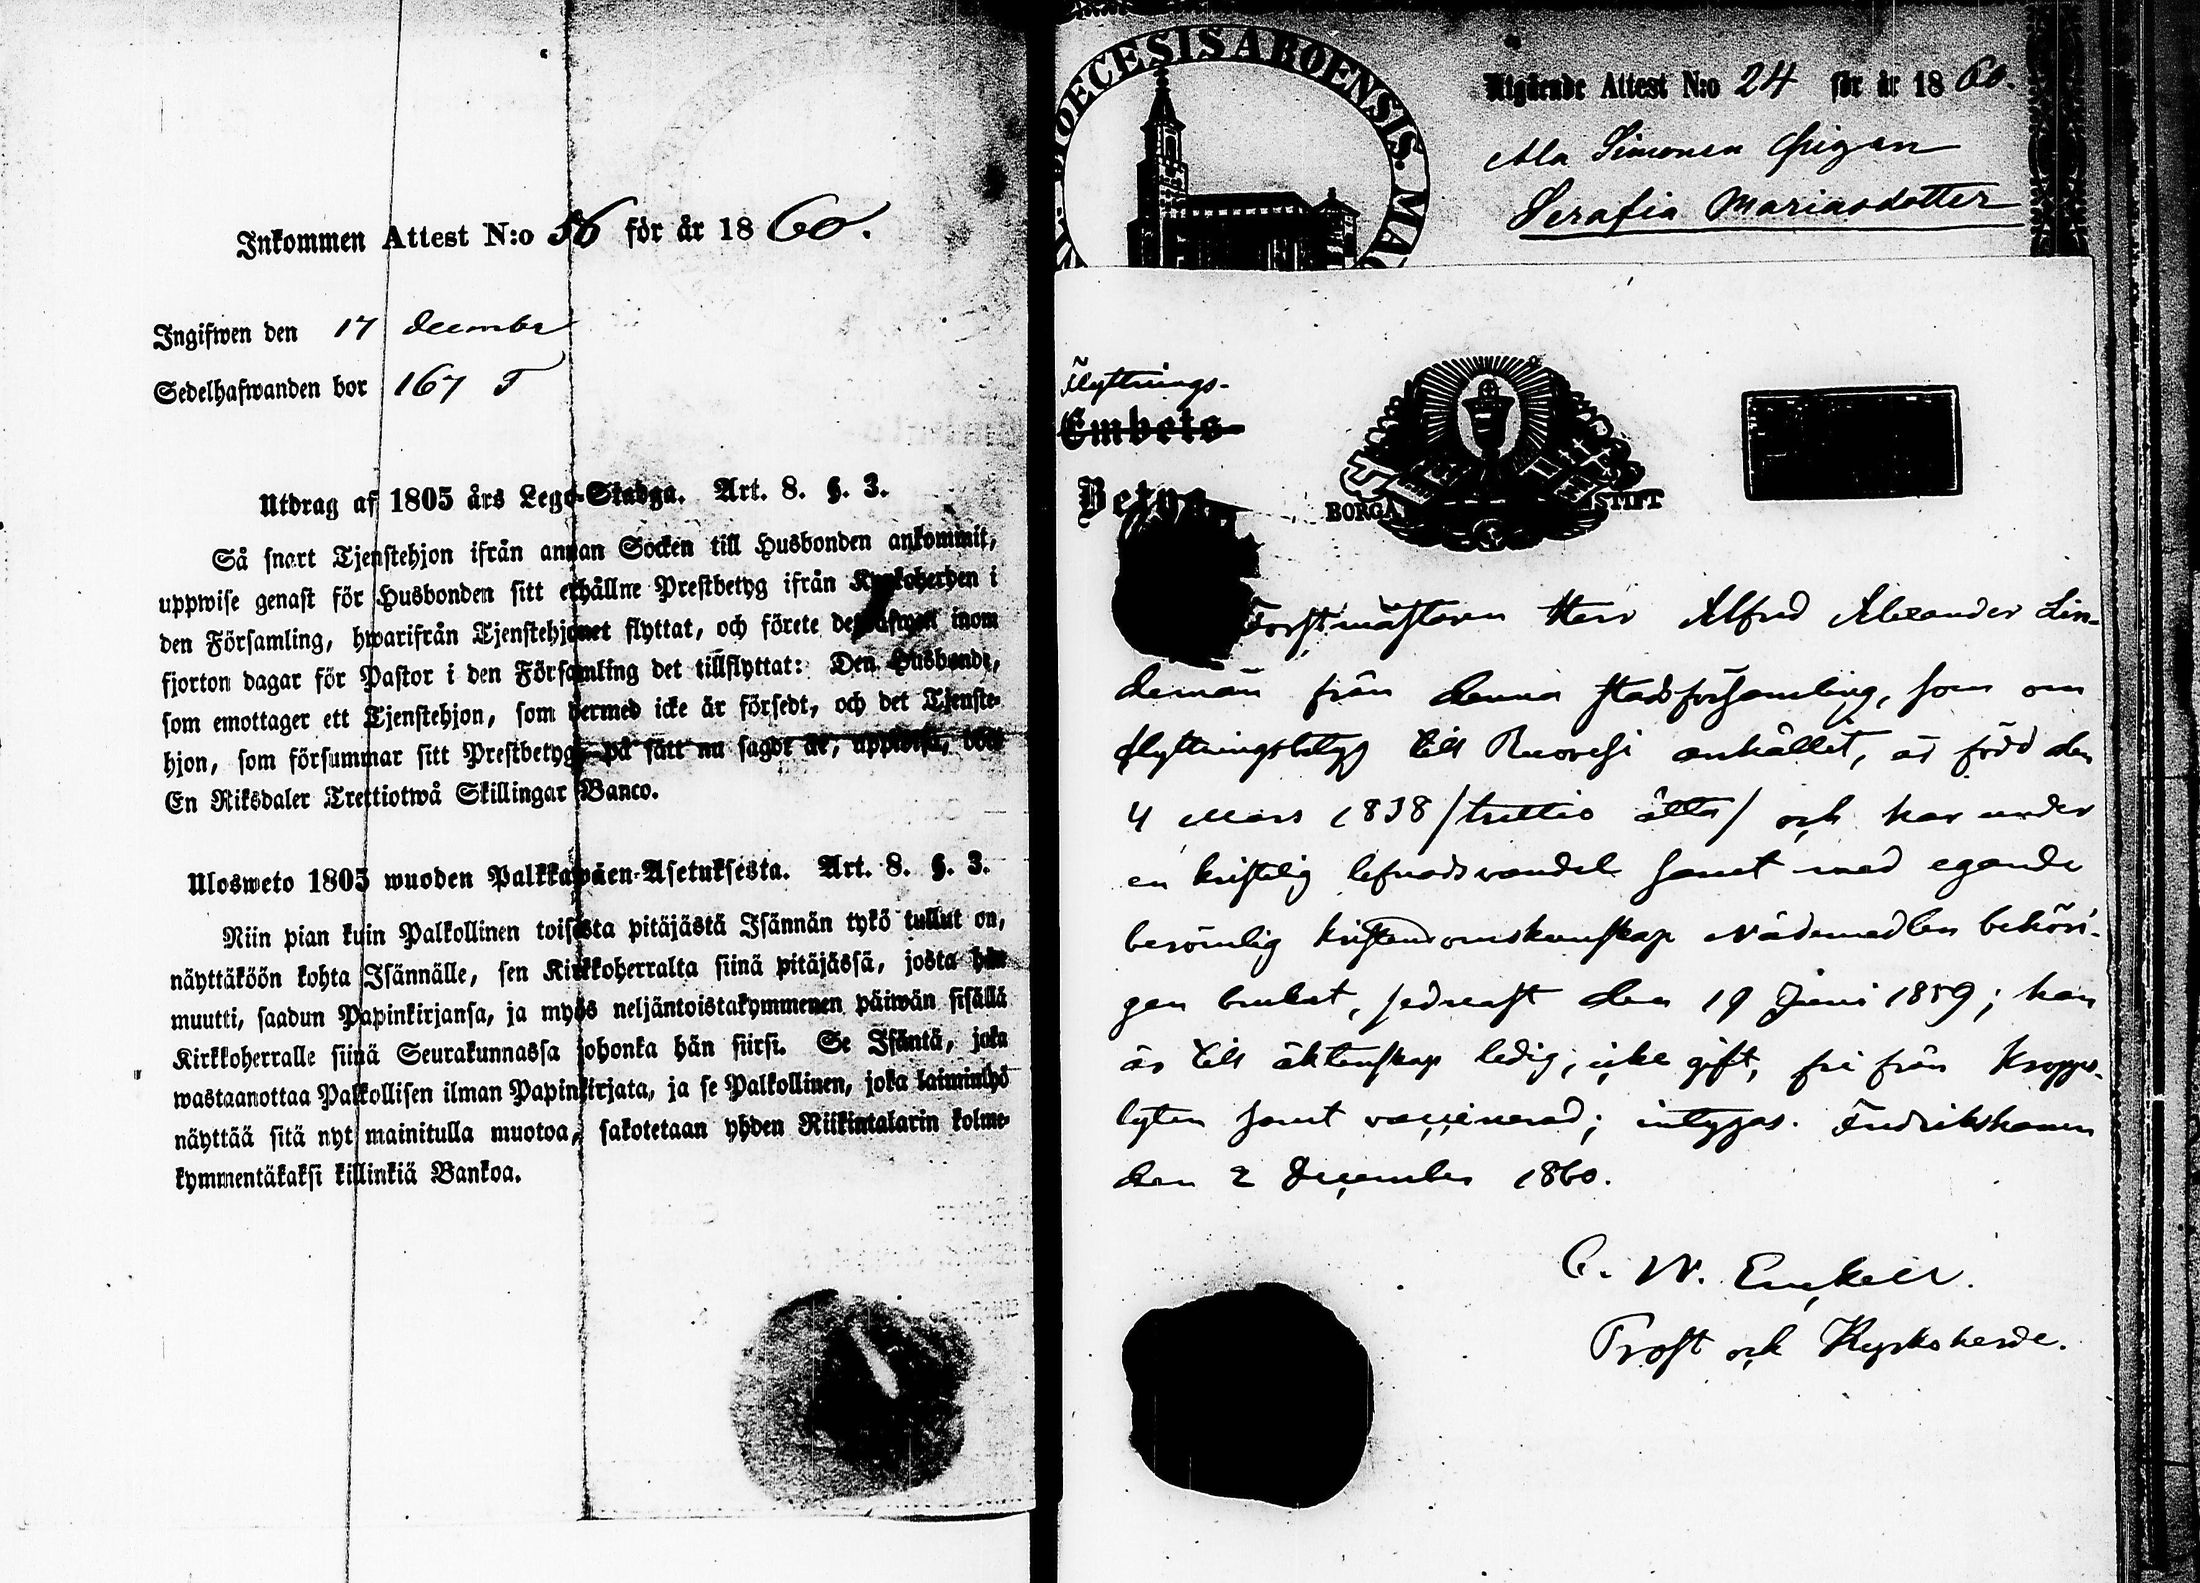 Inkommen Attest N:o 56 för år 1860.
Ingifwen den 17 december
Sedelhafwanden bor 167 T
Utdrag af 1805 års Lego-Stadga. Art. 8. §. 3.
Så snart Tjenstehjon ifrån annan Socken till Husbonden ankommit,
uppwise genast för Husbonden sitt erhållne Prestbetyg ifrån Kyrkoherden i
den Församling, hwarifrån Tjenstehjonet flyttat, och förete det inom
fjorton dagar för Pastor i den Församling det tillflyttat: Den Husbonde,
som emottager ett Tjenstehjon, som dermed icke är försedt, och det Tjenste-
hjon, som försummar sitt Prestbetyg, på sätt nu sagdt är, uppwisa, böte
En Riksdaler Trettiotwå Skillingar Banco.
Ulosweto 1805 wuoden Palkkawäen-Asetuksesta. Art. 8. §. 3.
Niin pian kuin Palkollinen toisesta pitäjästä Isännän tykö tullut on,
näyttäköön kohta Isännälle, sen Kirkkoherralta siinä pitäjässä, josta hän
muutti, saadun Papinkirjansa, ja myös neljäntoistakymmenen päiwän sisällä
Kirkkoherralle siinä Seurakunnassa johonka hän siirsi. Se Isäntä, joka
wastaanottaa Palkollisen ilman Papinkirjata, ja se Palkollinen, joka laiminlyö
näyttää sitä nyt mainitulla muotoa, sakotetaan yhden Riikintalarin kolme-
kymmentäkaksi killinkiä Bankoa.
DIOECESIS ABOENSIS. MAG
Utgående Attest N:o 24 för år 1860.
Ala Simonen Pigan
Serafia Mariasdotter
Flyttnings-
Embets-
Betyg.
BORGÅ STIFT
Forstmästaren Herr Alfred Alexander Lin-
deman från denna stadsförsamling, som om
flyttningsbetyg till Ruovesi anhållit, är född den
4 Mars 1838 /trettio åtta/ och har under
en kristelig lefnadsvandel samt med egande
berömlig kristendomskunskap Nådemedlen behöri-
gen brukat, sednast den 19 Juni 1859; han
är till äktenskap ledig, icke gift, fri från kropps-
lyten samt vaccinerad; intygas. Fredrikshamn
den 2 December 1860.
C. W. Enckell.
Prost och Kyrkoherde.